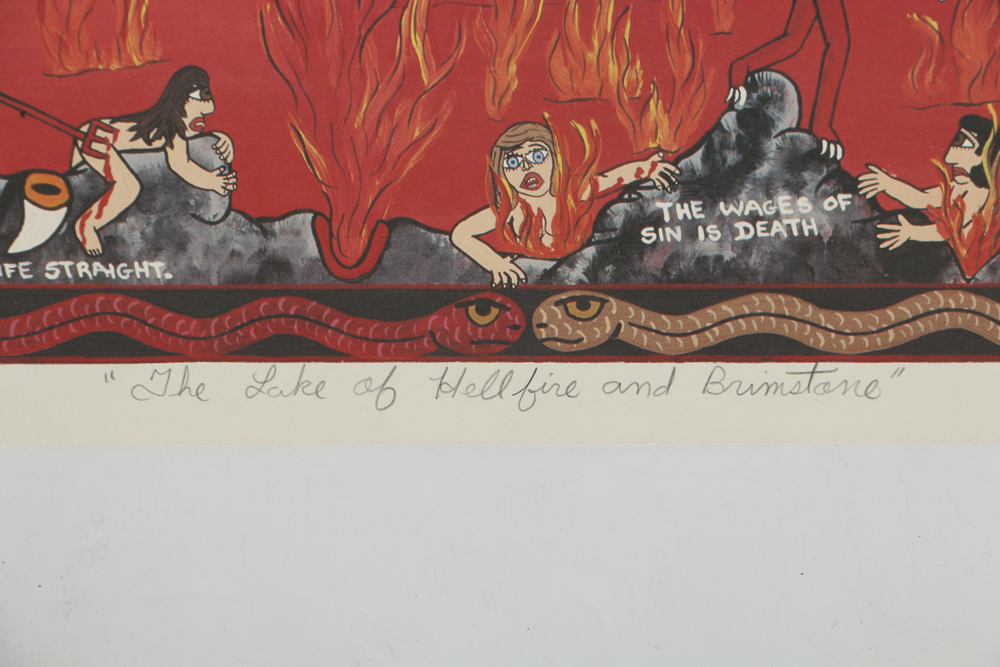 THE WAGES OF
SIN IS DEATH
IFE STRAIGHT.
"The Lake of Hellfire and Brimstone"